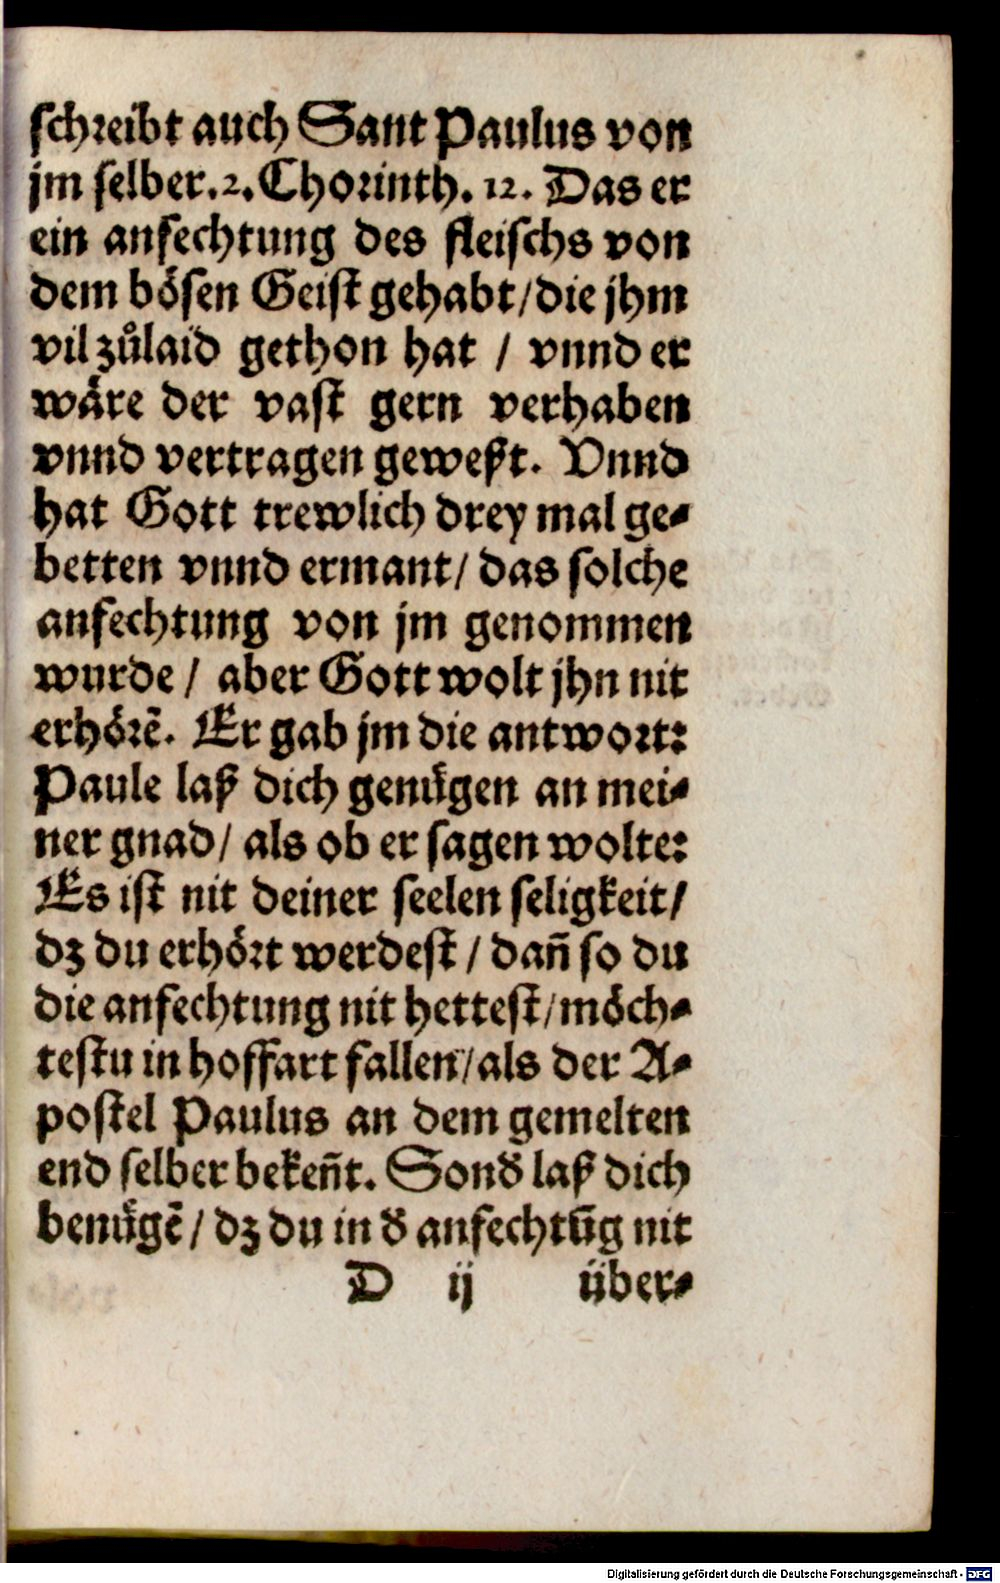 schreibt auch Sant Paulus von
jm selber.2. Chorinth. 12. Das er
ein anfechtung des fleischs von
dem bösen Geist gehabt/die jhm
vil zůlaid gethon hat / vnnd er
wäre der vast gern verhaben
vnnd vertragen geweßt. Vnnd
hat Gott trewlich drey mal ge-
betten vnnd ermant/ das solche
anfechtung von jm genommen
wurde / aber Gott wolt jhn nit
erhörẽ. Er gab jm die antwort:
Paule laß dich genügen an mei-
ner gnad/ als ob er sagen wolte:
Es ist nit deiner seelen seligkeit/
dz du erhört werdest / dañ so du
die anfechtung nit hettest/möch-
testu in hoffart fallen/als der A-
postel Paulus an dem gemelten
end selber bekeñt. Sonď laß dich
benügẽ / dz du in ď anfechtũg nit
D ij über-
Digitalisierung gefördert durch die Deutsche Forschungsgemeinschaft - DFG